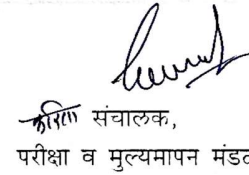 करिता संचालक,
परीक्षा व मुल्यमापन मंडळ